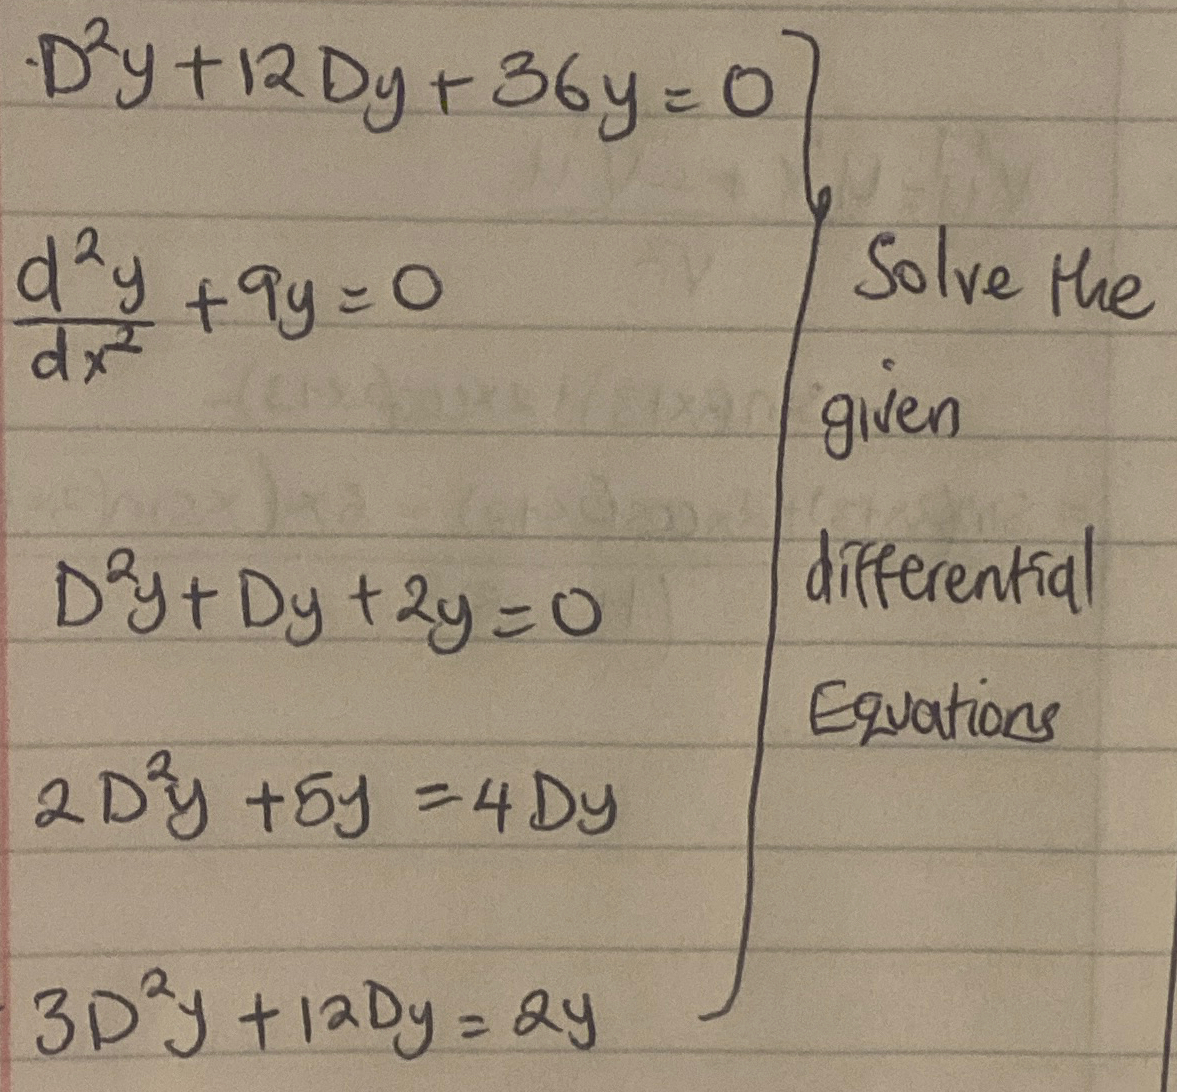 D²y + 12Dy + 36y = 0
d²y/dx² + 9y = 0
D²y + Dy + 2y = 0
2D²y + 5y = 4Dy
3D²y + 12Dy = 2y
Solve the
given
differential
Equations